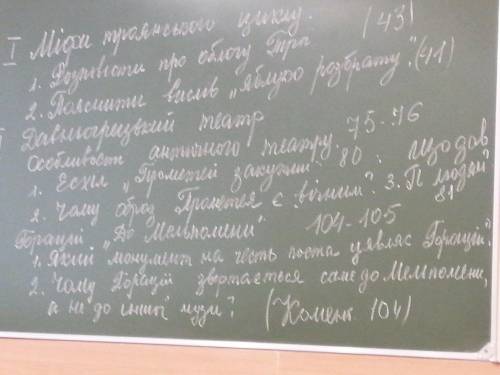 I Міфи троянського циклу. (43)
1. Розповісти про облогу Трої
2. Пояснити вислів „яблуко розбрату". (41)
Давньогрецький театр
Особливості античного театру. 75-76
1. Есхіл „Прометей закутий" 80. Що дав
2. Чому образ Прометея є вічним? 3. П людям 81
Горацій „До Мельпомени" 104-105
1. Який монумент на честь поета уявляє Горацій?
2. Чому Горацій звертається саме до Мельпомени,
а не до іншої музи? (Комент. 104)